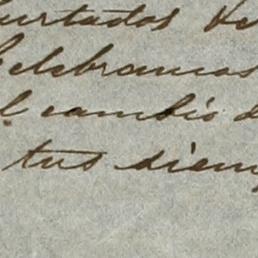 urtados de
elebramos
l cambio d
tus diem